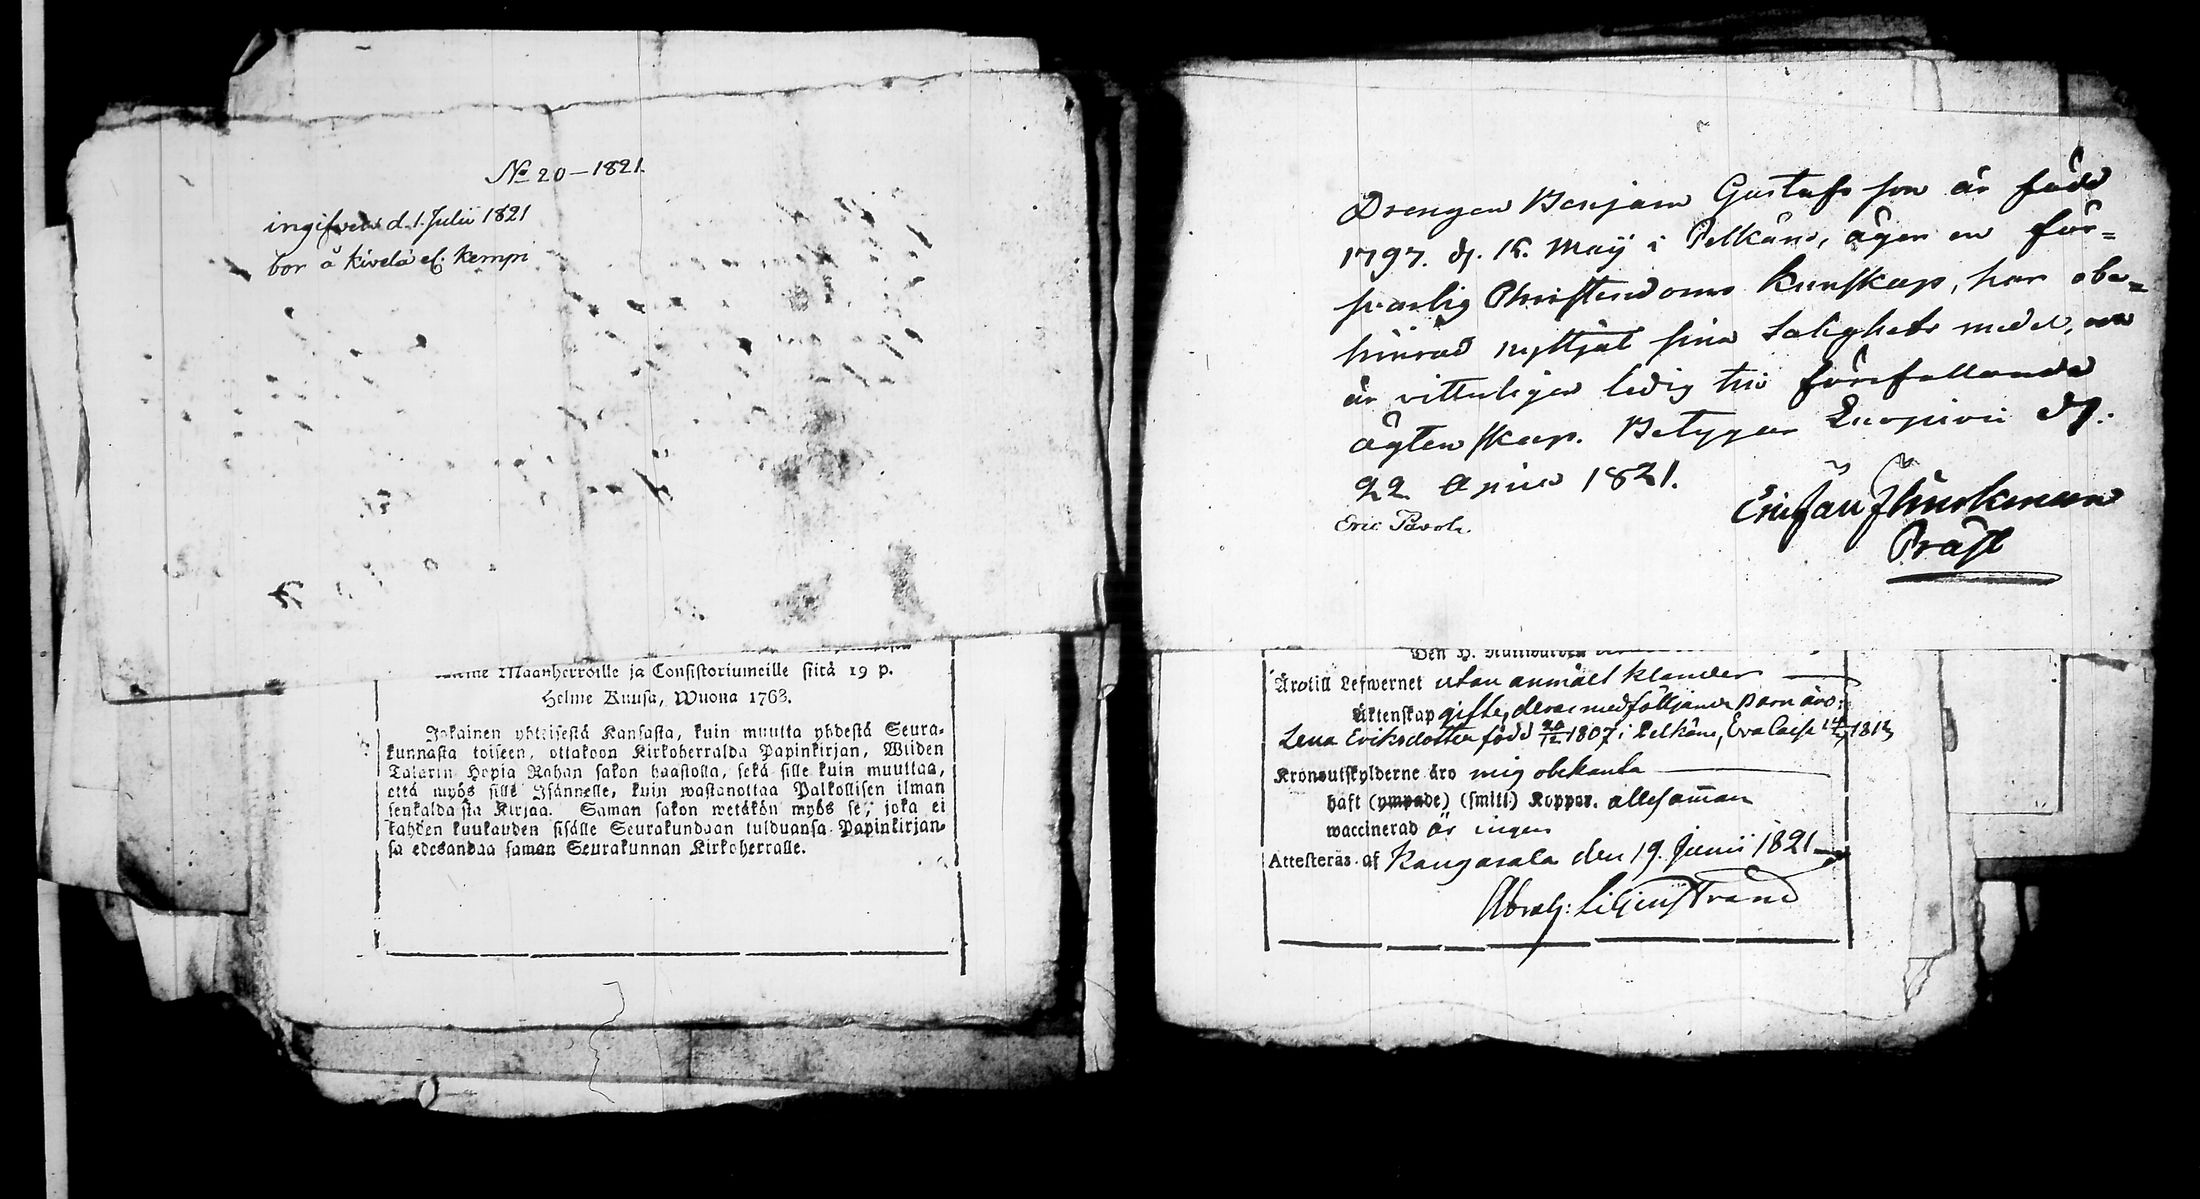 No 20 – 1821.
ingifven d. 1. Julii 1821
bor å Kivelä el. Kempi
Maanherroille ja Consistoriumeille siitä 19 p.
Helme Kuusa, Wuona 1763.
Jokainen yhteisestä Kansasta, kuin muutta yhdestä Seura-
kunnasta toiseen, ottakoon Kirkoherralda Papinkirjan, Wiiden
Talarin Hopia Rahan sakon haastolla, sekä sille kuin muuttaa,
että myös sille Isännelle, kuin wastanottaa Palkollisen ilman
senkaldaista Kirjaa. Saman sakon wetäkön myös se, joka ei
kahden kuukauden sisälle Seurakundaan tulduansa Papinkirjan-
sa edesandaa saman Seurakunnan Kirkoherralle.
Drengen Benjam Gustafsson är född
1797. d. 15. Maij i Pelkäne, äger en för-
svarlig Christendoms Kunskap, har obe-
hindrad nyttjat sina Salighets medel, och
är vitterligen ledig till förefallande
ägtenskap. Betygar d:
22 April 1821.
Eric
Präst
Ärotill Lefwernet utan anmält klander
Äktenskap gifte, deras medföljande Barn äro:
Lena Eriksdotter född 20/12 1807 i Pelkäne, Eva Caisa 14/ 1813
Kronoutskylderne äro mig obekanta
haft (ympade) (smitt.) Koppor. allesamman
waccinerad är ingen
Attesteras af Kangasala den 19. Junii 1821
Abrah: Liljenstrand